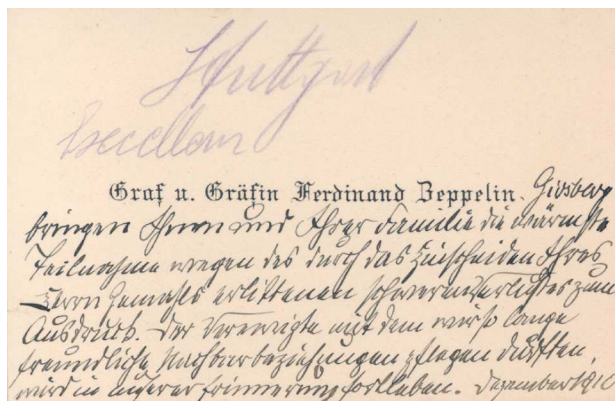 Stuttgart
Excellenz
Graf u. Gräfin Ferdinand Zeppelin. Girsberg
bringen Ihnen und Ihrer Familie die wärmste
Teilnahme wegen des durch das Hinscheiden Ihres
Herrn Gemahls erlittenen schweren Verlustes zum
Ausdruck. Der Verewigte mit dem wir so lange
freundliche Nachbarbeziehungen pflegen durften,
wird in unserer Erinnerung fortleben. Dezember 1910